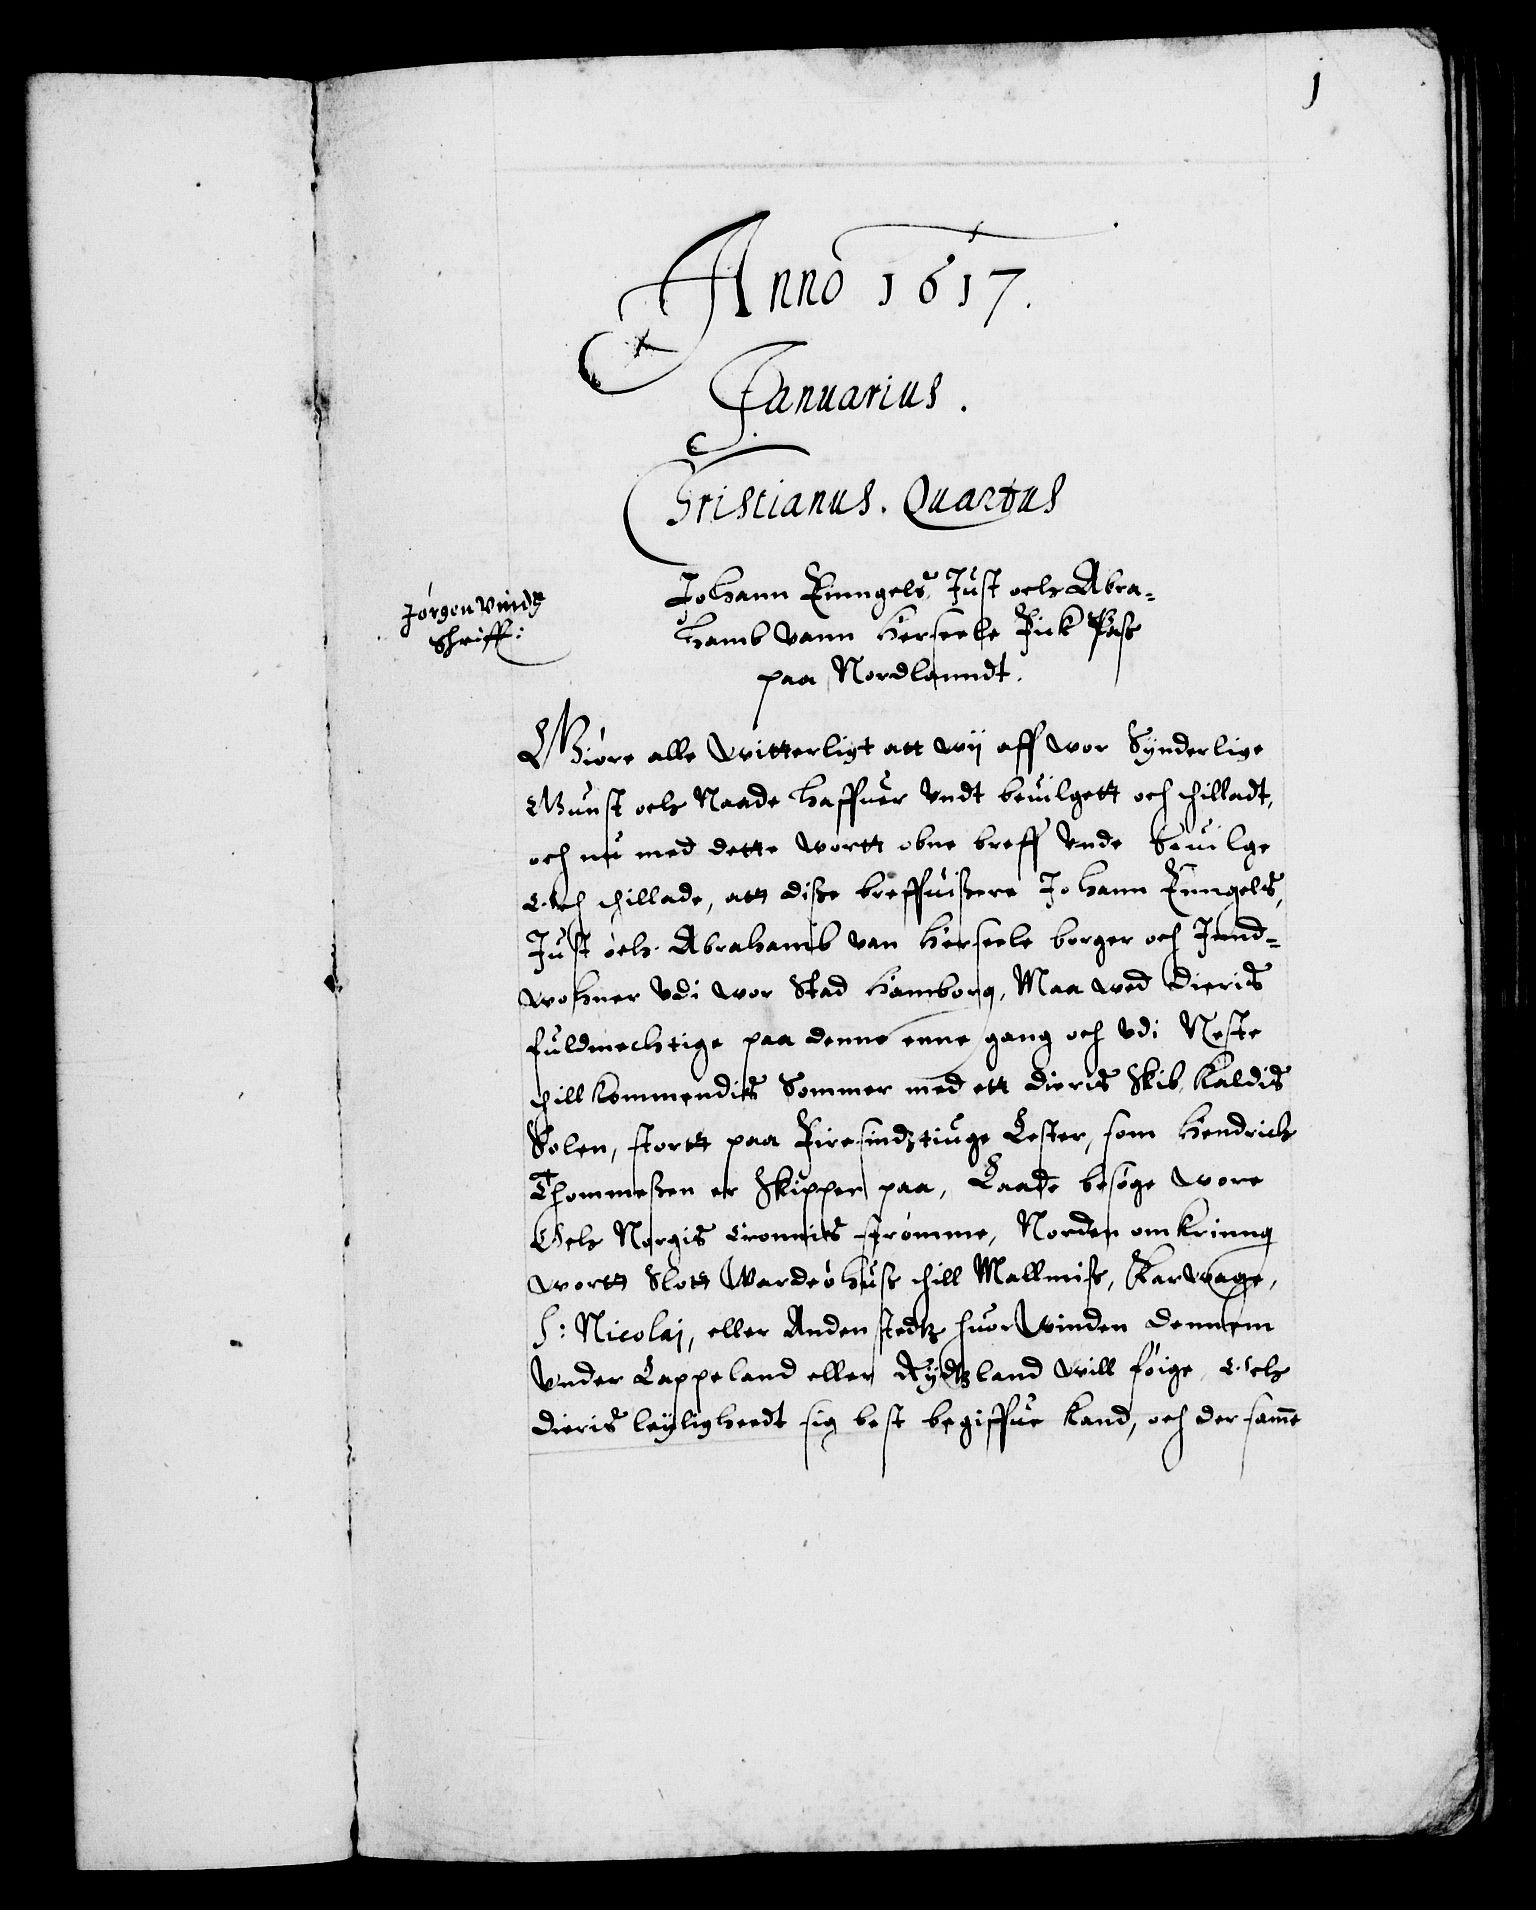 1
Anno 1617.
Januarius.
Christianus. Quartus
Jörgen Vinds
Schriff:
Johann Enngels Just och Abra-
hamb vann Herseele Fick Pass
paa Nordlanndt.
Giöre alle witterligt att wij aff wor Synderlige
Gunst och Naade haffuer Undt beuilgett och thilladt,
och nu med dette wortt obne breff Unde Beuilge
Och thillade, att disse breffuissere Johann Enngels,
Just och Abrahamb van Herseele borger och Jnnd-
wohner Udi wor Stad Hamborg, Maa wed dieris
fuldmechtige paa denne enne gang och Udi Neste
thillkommendis Sommer med ett dieris Skib, kaldis
Solen, stortt paa Firesindztiuge Lester, som Hendrich
Thommessen er Skipper paa, Lade besöge wore
Och Norgis Cronnis strömme, Norden omkrinng
wortt Slott Wardeöhuss thill Mallmiss, Karwage,
S: Nicolaj, eller Andenstedtz huor Winden dennem
Under Lappeland eller Rydtzland will föige, Och
dieris leyligheedt sig best begiffue kand, och der same